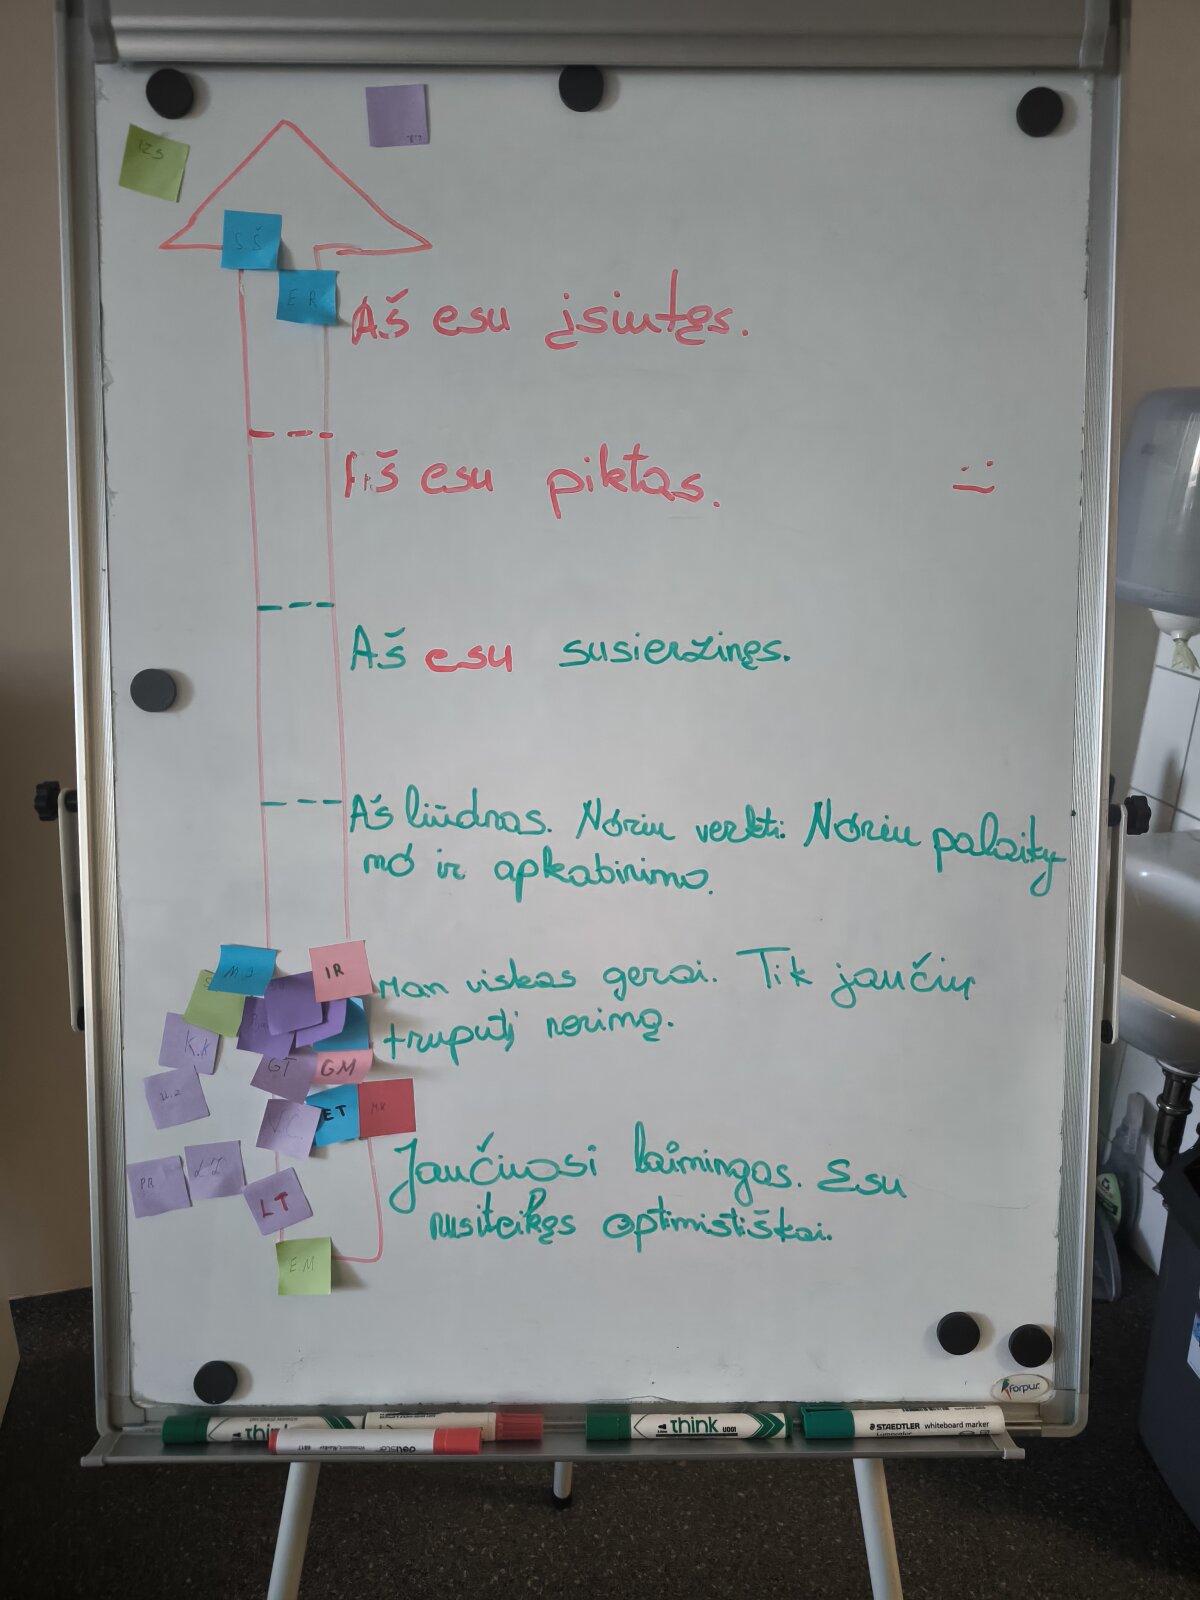 IZS
S.Š
E R
Aš esu įsiutęs.
Aš esu piktas.
Aš esu susierzinęs.
Aš liūdnas. Noriu verkti. Noriu palaiky
mo ir apkabinimo.
M.J
IR
Man viskas gerai. Tik jaučiu
truputį nerimą.
K.K
GT
GM
V.C.
ET
M.K
Jaučiuosi laimingas. Esu
nusiteikęs optimistiškai.
PR
LT
E.M
forpus
think
think
STAEDTLER whiteboard marker
Lumocolor